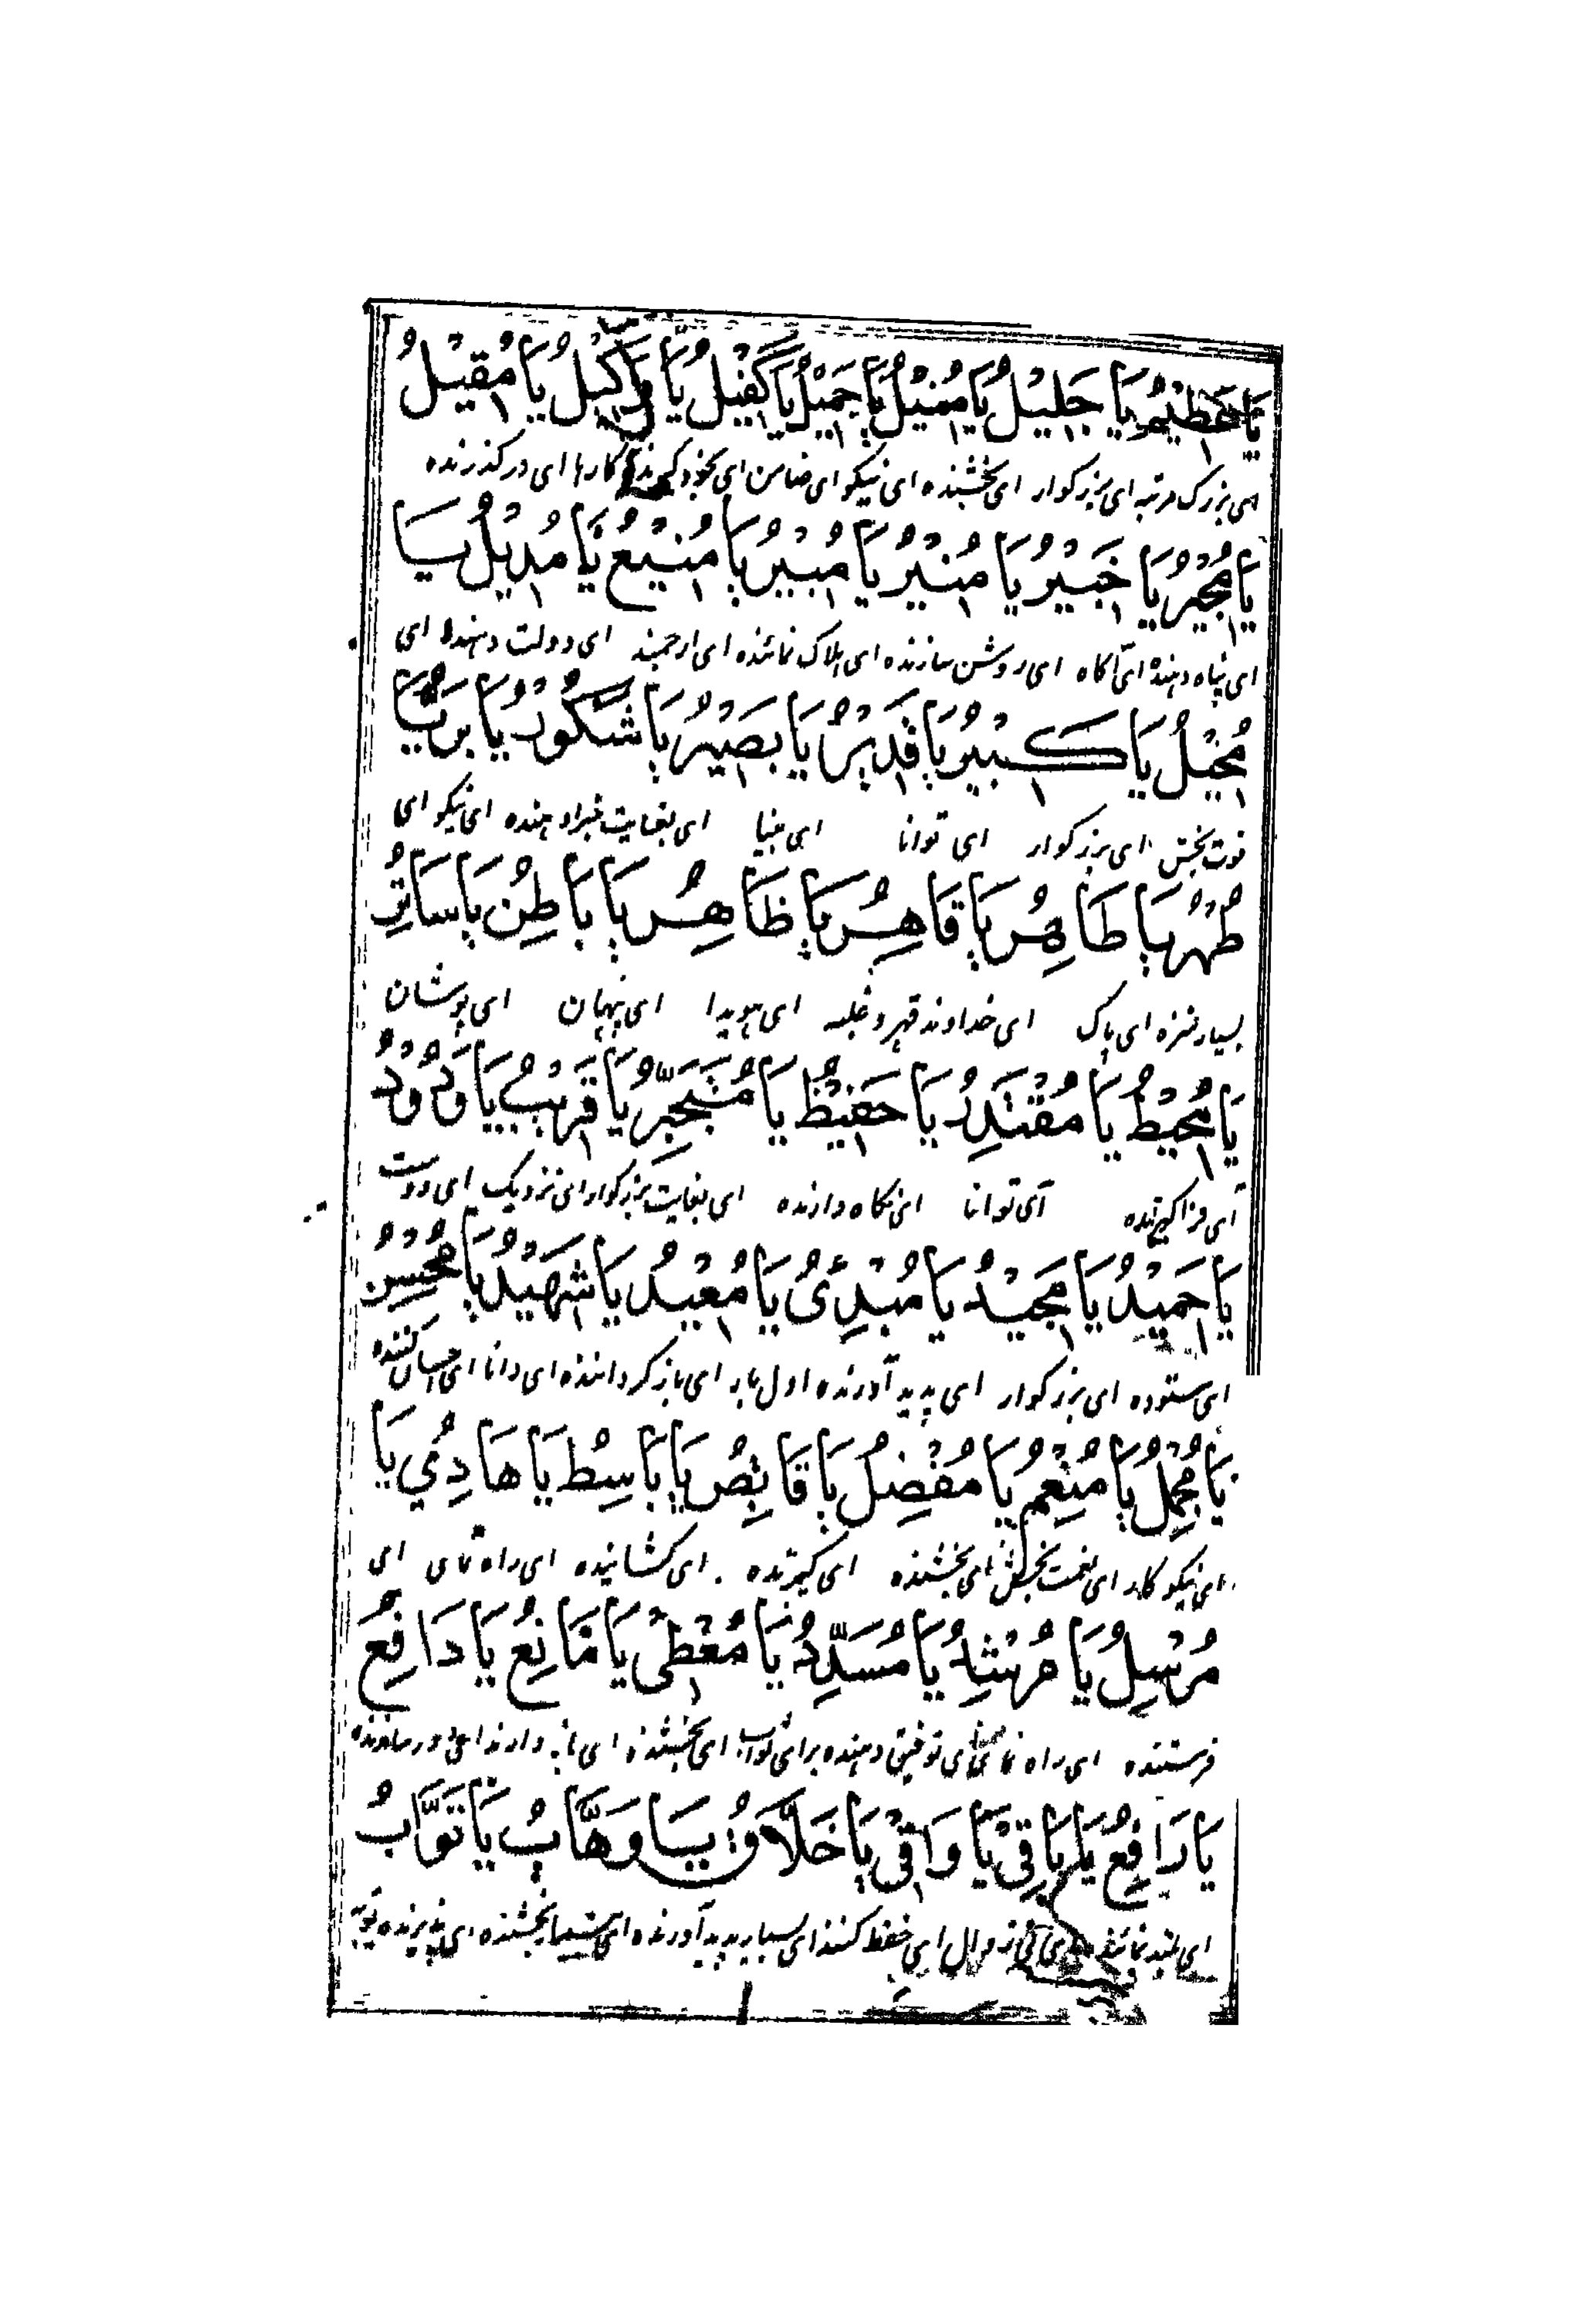 يَا عَظِيْمُ يَا جَلِيْلُ يَا مُنِيْلُ يَا جَمِيْلُ يَا كَفِيْلُ يَا وَكِيْلُ يَا مُقِيْلُ
ای بزرگ مرتبه ای بزرکوار ای بخشنده ای نیکو ای ضامن ای بخود کیرنده کارها ای درکذرنده
يَا مُجِيْرُ يَا خَبِيْرُ يَا مُنِيْرُ يَا مُبِيْرُ يَا مَنِيْعُ يَا مُدِيْلُ يَا
ای پناه دهنده ای آکاه ای روشن سازنده ای هلاک نمائنده ای ارجمند ای دولت دهنده ای
مُحِيْلُ يَا كَبِيْرُ يَا قَدِيْرُ يَا بَصِيْرُ يَا شَكُوْرُ يَا بَرُّ يَا
قوت بخش ای بزرکوار ای توانا ای بینا ای بغایت جزا دهنده ای نیکو ای
طُهْرُ يَا طَاهِرُ يَا قَاهِرُ يَا ظَاهِرُ يَا بَاطِنُ يَا سَاتِرُ
بسیار منزه ای پاک ای خداوند قهر و غلبه ای هویدا ای پنهان ای پوشان
يَا مُحِيْطُ يَا مُقْتَدِرُ يَا حَفِيْظُ يَا مُتَجَبِّرُ يَا قَرِيْبُ يَا وَدُوْدُ
ای فراکیرنده ای توانا ای نکاه دارنده ای بغایت بزرکوار ای نزدیک ای دوست
يَا حَمِيْدُ يَا مَجِيْدُ يَا مُبْدِئُ يَا مُعِيْدُ يَا شَهِيْدُ يَا مُحْسِنُ
ای ستوده ای بزرکوار ای پدید آورنده اول بار ای باز کرداننده ای دانا ای احسان کننده
يَا مُجْمِلُ يَا مُنْعِمُ يَا مُفْضِلُ يَا قَابِضُ يَا بَاسِطُ يَا هَادِي يَا
ای نیکو کار ای نعمت بخش ای بخشنده ای کیرنده ای کشاینده ای راه نمای ای
مُرْسِلُ يَا مُرْشِدُ يَا مُسَدِّدُ يَا مُعْطِیْ يَا مَانِعُ يَا دَافِعُ
فرستنده ای راه نما ای توفیق دهنده برای ثواب ای بخشنده ای باز دارنده ای دور سازنده
يَا رَافِعُ يَا بَاقِیْ يَا وَاقِیْ يَا خَلَّاقُ يَا وَهَّابُ يَا تَوَّابُ
ای بلند نمائنده ای زوال ای حفظ کننده ای بسیار پدید آورنده ای بسیار بخشنده ای پذیرنده توبه